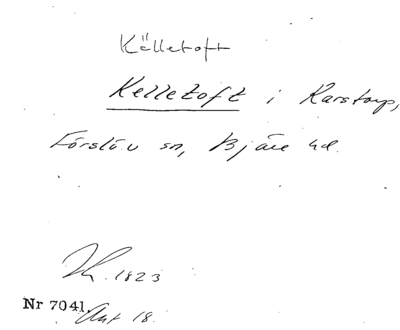 Källetoft
Kelletoft i Karstorp,
Förslöv sn, Bjäre hd.
1823
Nr 7041.
Akt 18.